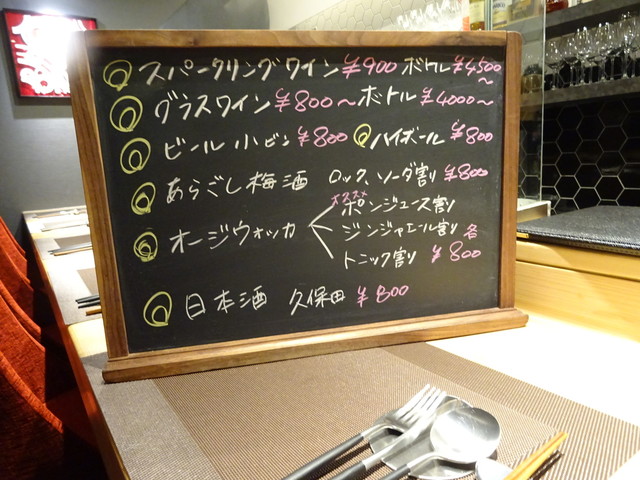 スパークリングワイン ¥900 ボトル ¥4500～
グラスワイン ¥800～ ボトル ¥4000～
ビール 小ビン ¥800 ハイボール ¥800
あらごし梅酒 ロック、ソーダ割り ¥800
オススメ
ポンジュース割り
オージウォッカ ジンジャエール割り 各
トニック割り ¥800
日本酒 久保田 ¥800